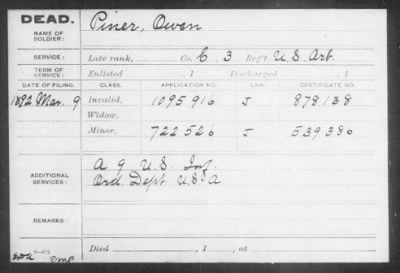 DEAD.
NAME OF SOLDIER: Piner, Owen
SERVICE: Late rank, Co. C, 3 Reg't U.S. Art.
TERM OF SERVICE: Enlisted , 1 Discharged , 1
DATE OF FILING. CLASS. APPLICATION NO. LAW. CERTIFICATE NO.
1892 Mar. 9 Invalid, 1095916 J 878138
Widow,
Minor, 722526 J 539380
ADDITIONAL SERVICES: A G U.S. Inf.
Ord Dept U.S.A
REMARKS:
Died , 1 , at